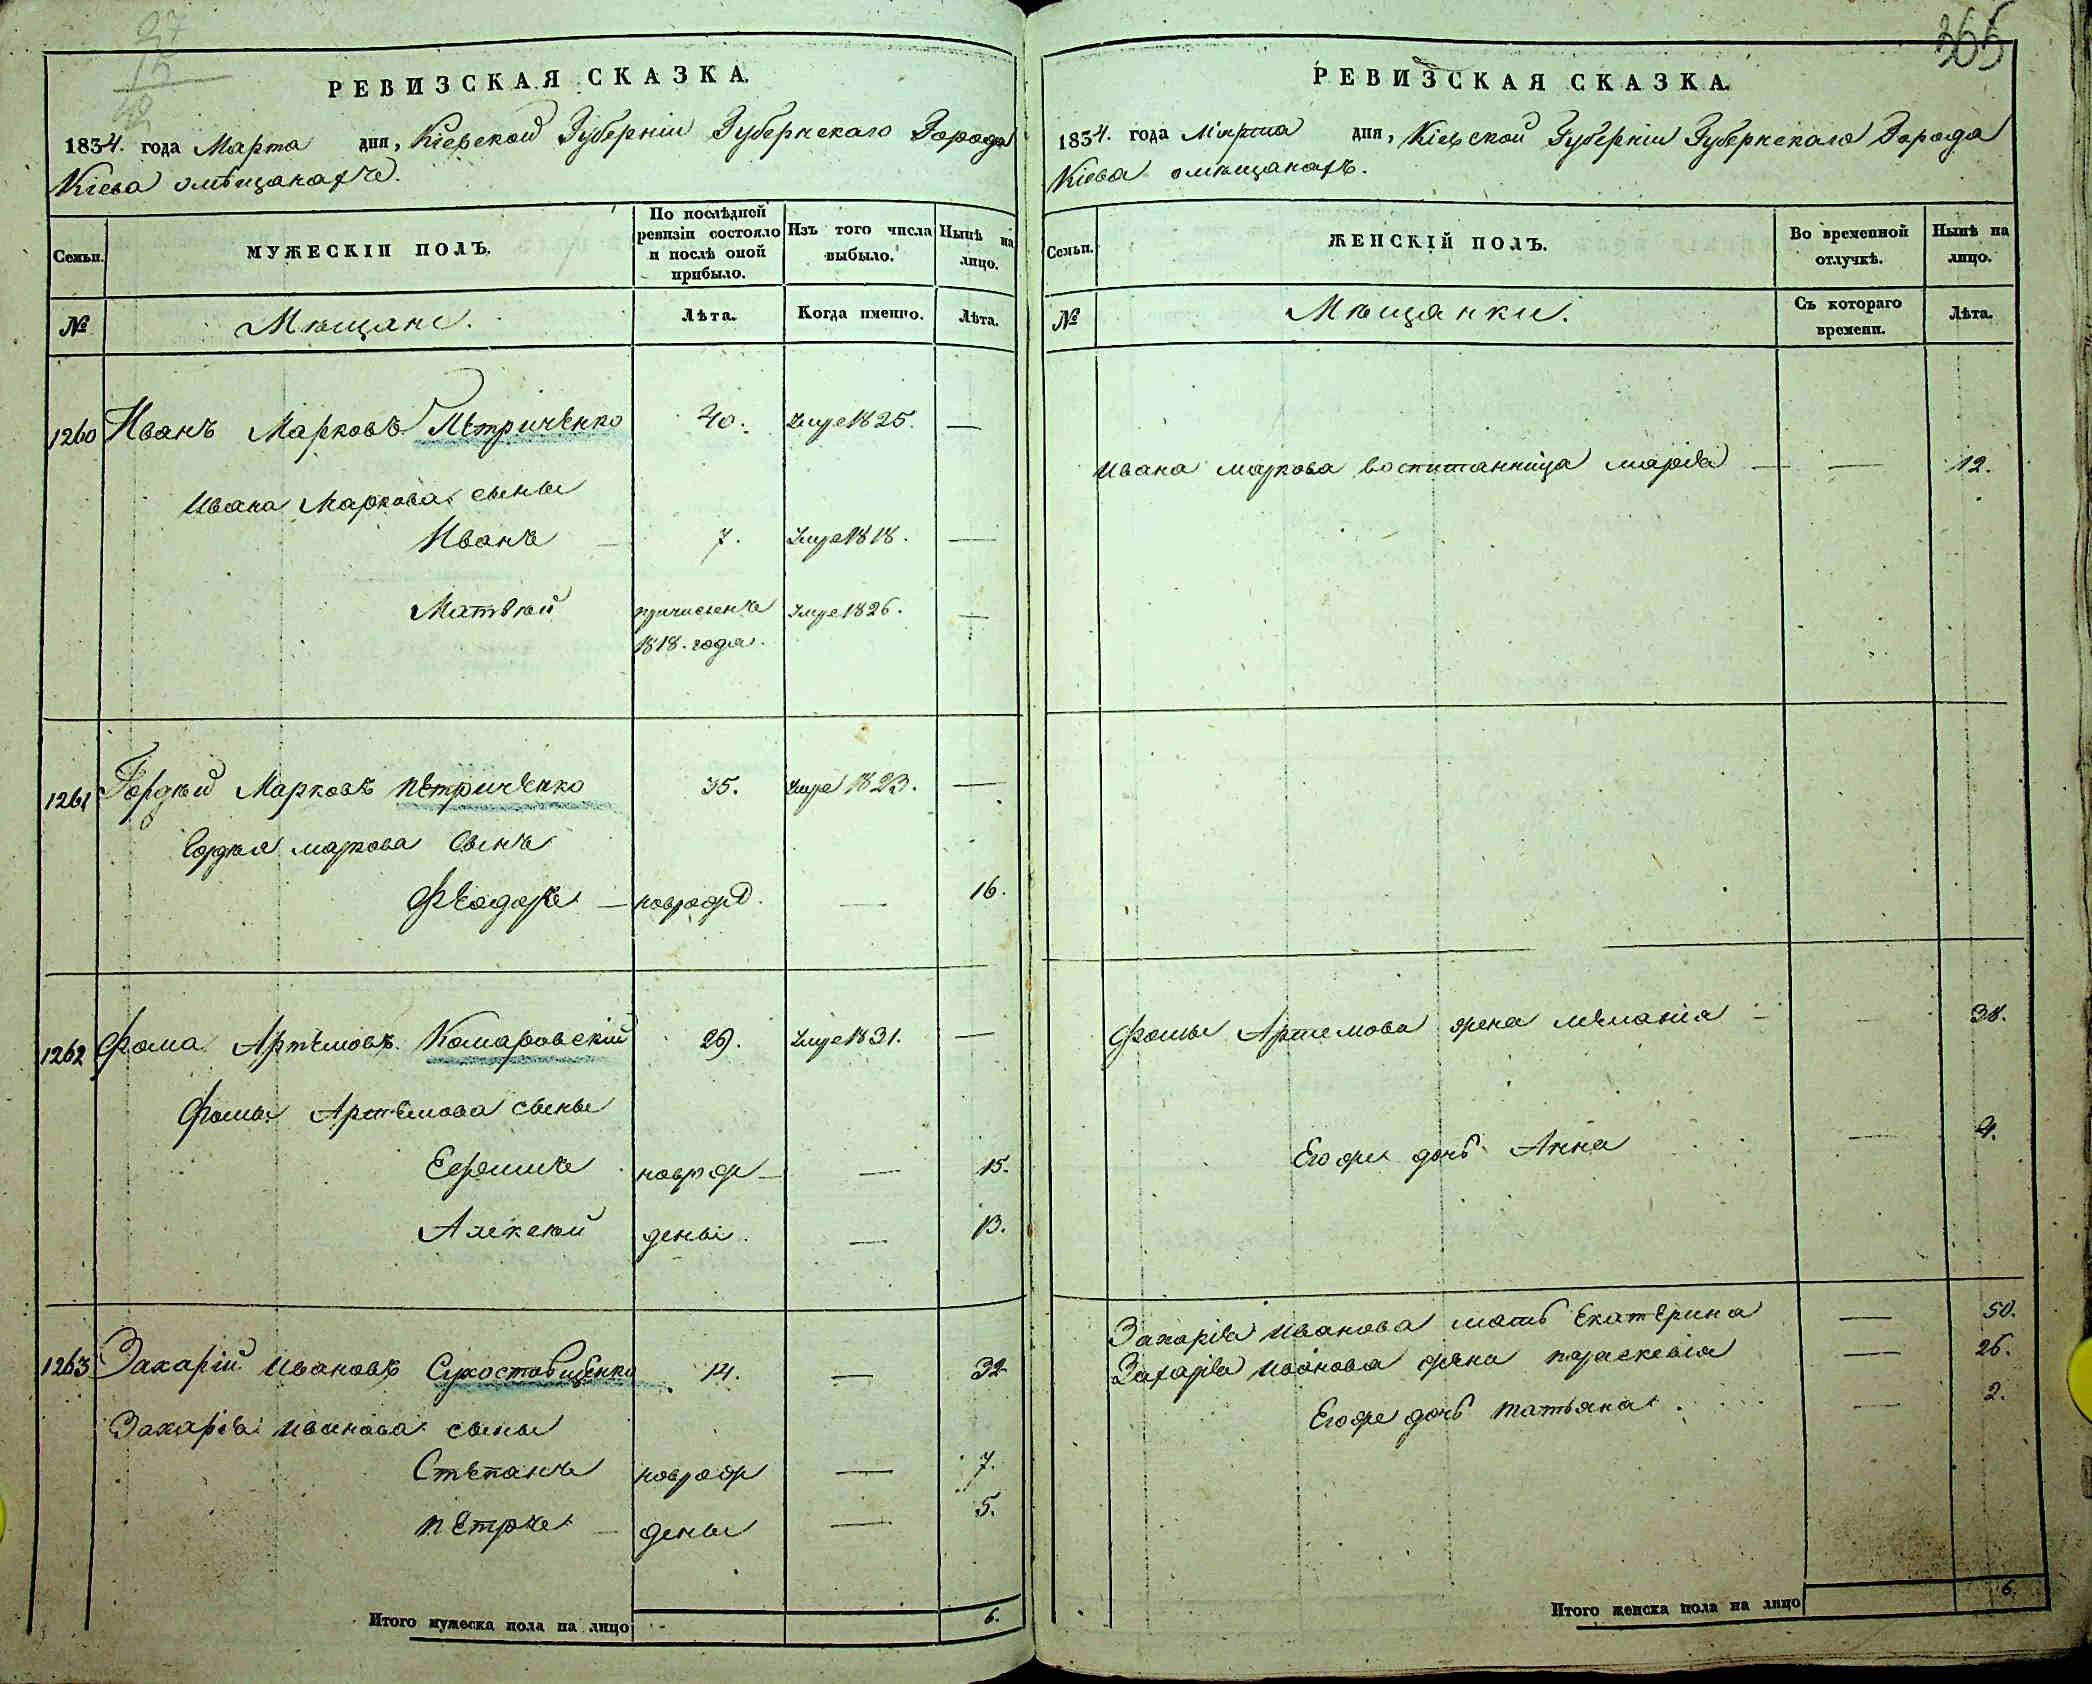 265
РЕВИЗСКАЯ СКАЗКА.
1834. года Марта дня, Кіевской Губерніи Губернскаго Города
Кіева омѣщанахъ.
Семьи.
МУЖЕСКІЙ ПОЛЪ.
По послѣдней ревизіи состояло и послѣ оной прибыло.
Изъ того числа выбыло.
Нынѣ на лицо.
№
Мѣщане.
Лѣта.
Когда именно.
Лѣта.
1260 Иванъ Марковъ Петриченко 40. Умре 1825. —
Ивана Маркова сыны
Иванъ — 7. Умре 1818. —
Матвѣй причисленъ Умре 1826. —
1818. года.
1261 Гордѣй Марковъ петриченко 35. Умре 1823. —
Гордѣя маркова сынъ
Феодоръ — новрожд. — 16.
1262 Фома Артемовъ Комаровскій 29. Умре 1831. —
Фомы Артемова сыны
Ефимъ новрож — — 15.
Алексѣй — 13.
1263 Захарій Ивановъ Сухоставченко 14. — 32
Захарія Иванова сыны
Степанъноврож — 7.
петръ — — 5.
Итого мужеска пола на лицо 6.
РЕВИЗСКАЯ СКАЗКА.
1834. года Марта дня, Кіевской Губерніи Губернскаго Города
Кіева омѣщанахъ.
Семьи.
ЖЕНСКІЙ ПОЛЪ.
Во временной отлучкѣ.
Нынѣ на лицо.
№
Мѣщанки.
Съ котораго времени.
Лѣта.
Ивана маркова воспитанница марія — — 12.
Фомы Артемова жена меланія — 38.
Егоже дочь Анна — 4.
Захарія Иванова мать Екатерина — 50.
Захарія Иванова жена параскевія — 26.
Егоже дочь татьяна. — 2.
Итого женска пола на лицо 6.